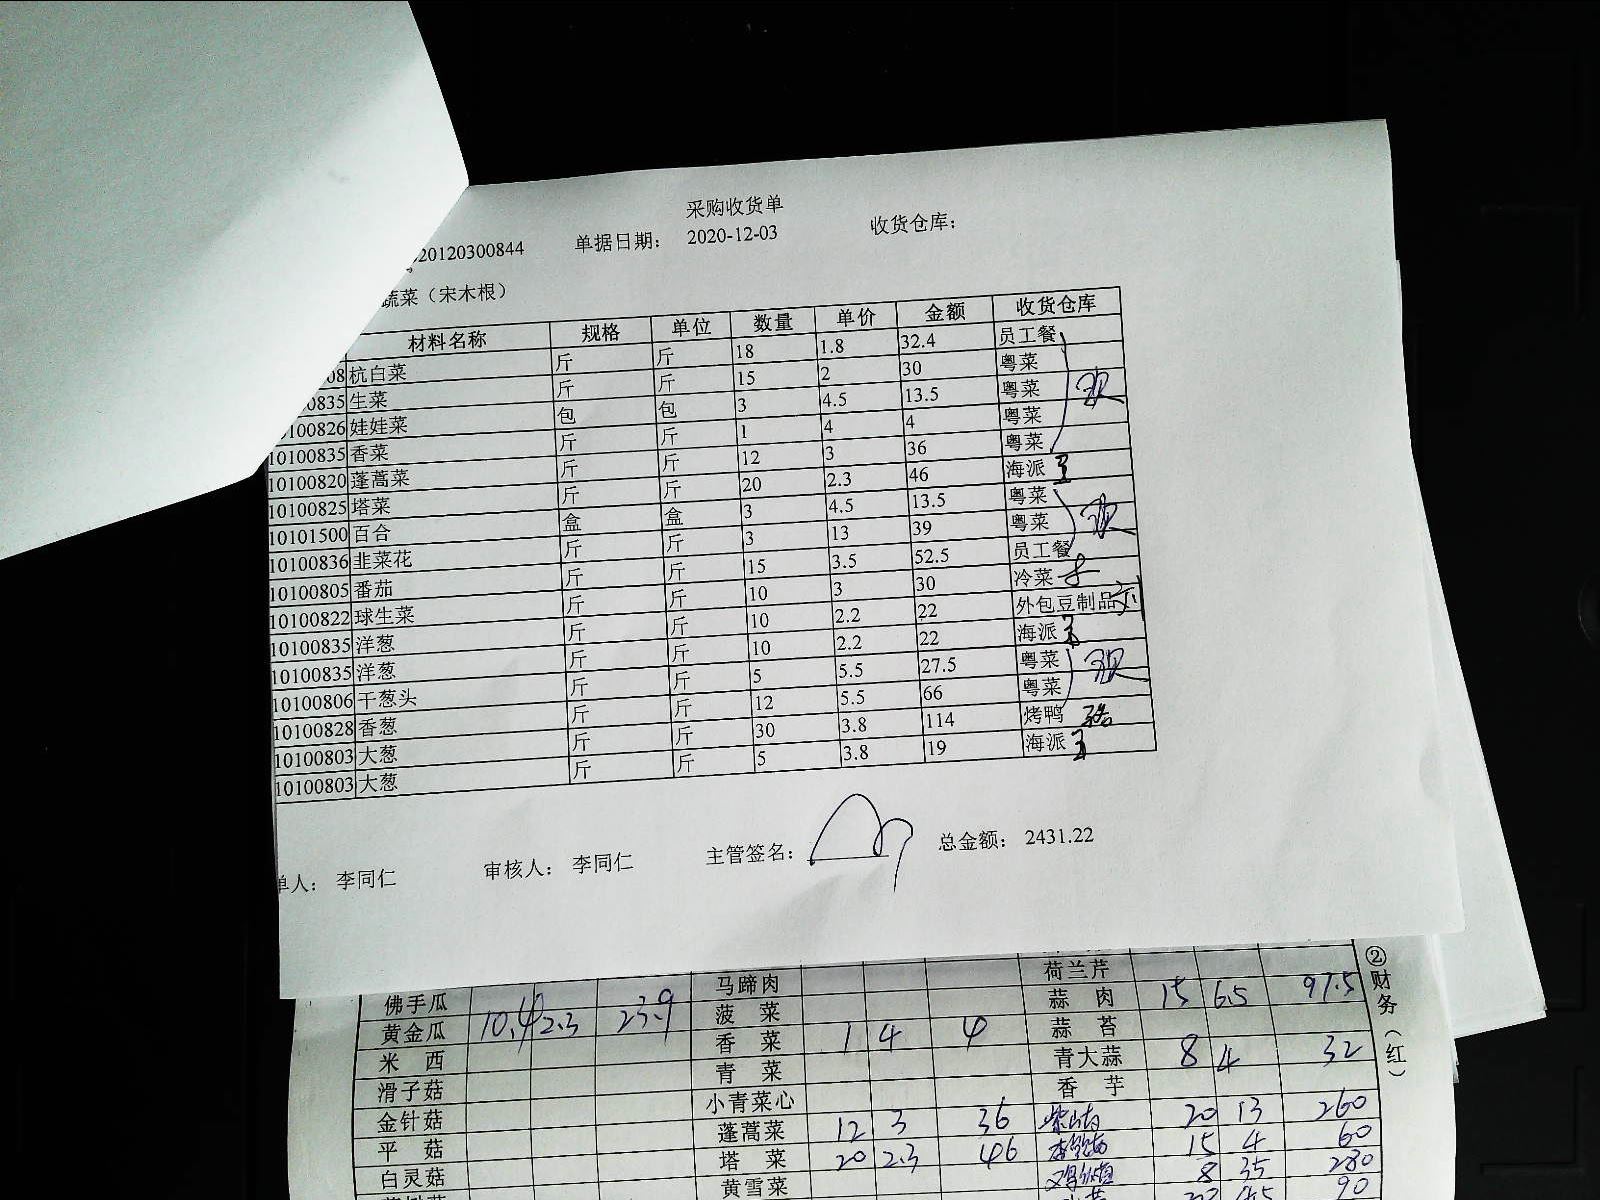 采购收货单
20120300844 单据日期： 2020-12-03 收货仓库：
蔬菜（宋木根）
材料名称 规格 单位 数量 单价 金额 收货仓库
08 杭白菜 斤 斤 18 1.8 32.4 员工餐
0835 生菜 斤 斤 15 2 30 粤菜
100826 娃娃菜 包 包 3 4.5 13.5 粤菜
10100835 香菜 斤 斤 1 4 4 粤菜
10100820 蓬蒿菜 斤 斤 12 3 36 粤菜
10100825 塔菜 斤 斤 20 2.3 46 海派
10101500 百合 盒 盒 3 4.5 13.5 粤菜
10100836 韭菜花 斤 斤 3 13 39 粤菜
10100805 番茄 斤 斤 15 3.5 52.5 员工餐
10100822 球生菜 斤 斤 10 3 30 冷菜
10100835 洋葱 斤 斤 10 2.2 22 外包豆制品
10100835 洋葱 斤 斤 10 2.2 22 海派
10100806 干葱头 斤 斤 5 5.5 27.5 粤菜
10100828 香葱 斤 斤 12 5.5 66 粤菜
10100803 大葱 斤 斤 30 3.8 114 烤鸭
10100803 大葱 斤 斤 5 3.8 19 海派
单人： 李同仁 审核人： 李同仁 主管签名： 总金额： 2431.22
马蹄肉 荷兰芹
佛手瓜 菠菜 蒜肉 15 6.5 97.5
黄金瓜 10.4 2.3 23.9 香菜 1 4 4 蒜苔
米西 青菜 青大蒜 8 4 32
滑子菇 小青菜心 香芋
金针菇 蓬蒿菜 12 3 36 20 13 260
平菇 塔菜 20 2.3 46 15 4 60
白灵菇 黄雪菜 8 35 280
90
②财务（红）